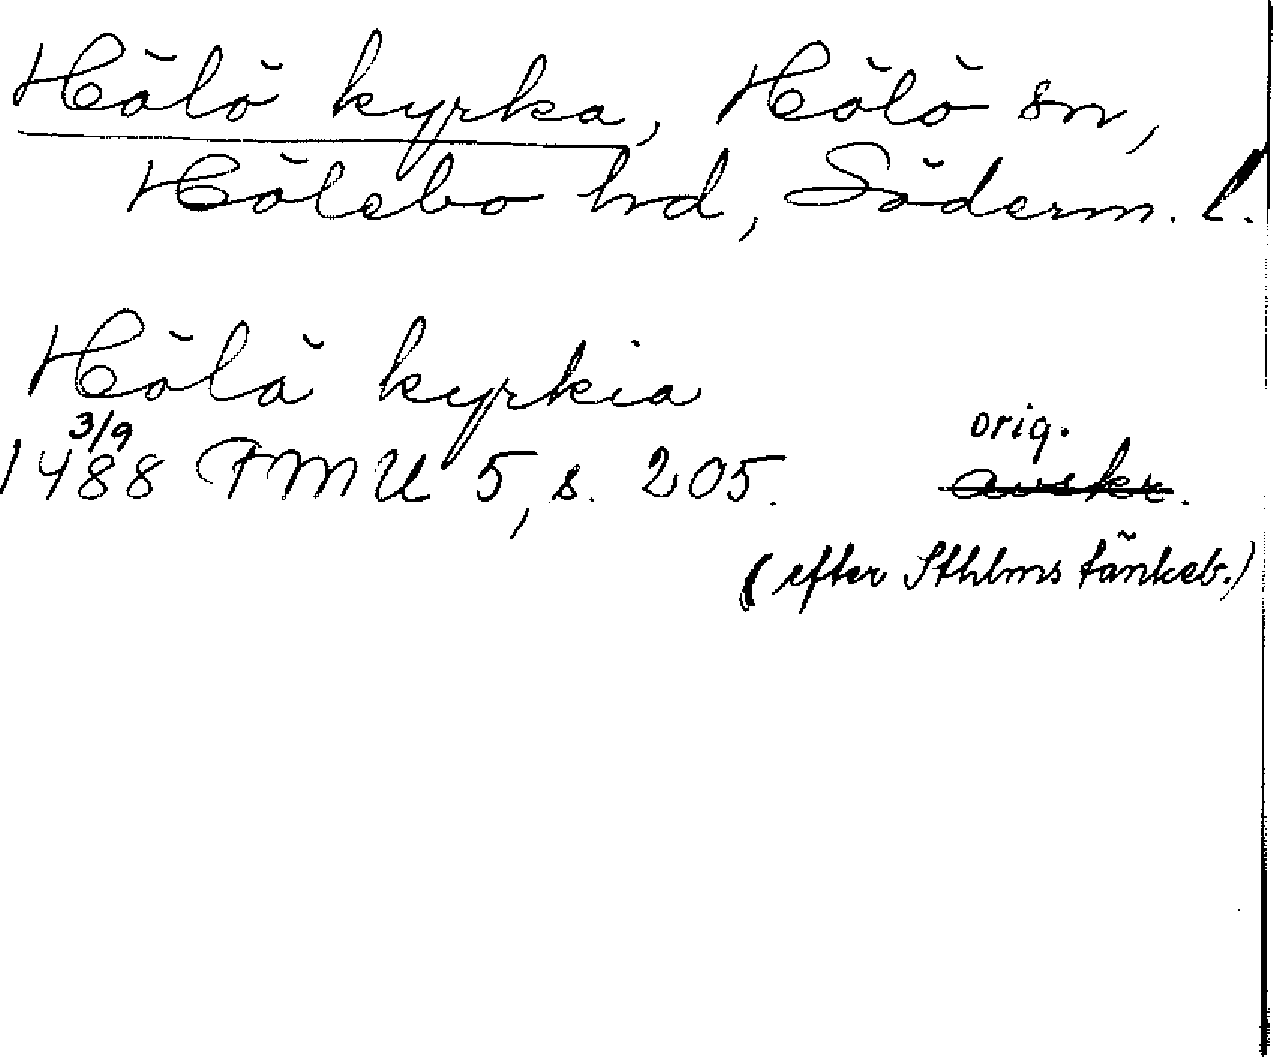 Hölö kyrka, Hölö sn,
Hölebo hd, Söderm. l.
Hölä kyrkia
3/9 orig.
1488 FMU 5, s. 205. avskr.
(efter Sthlms tänkeb.)